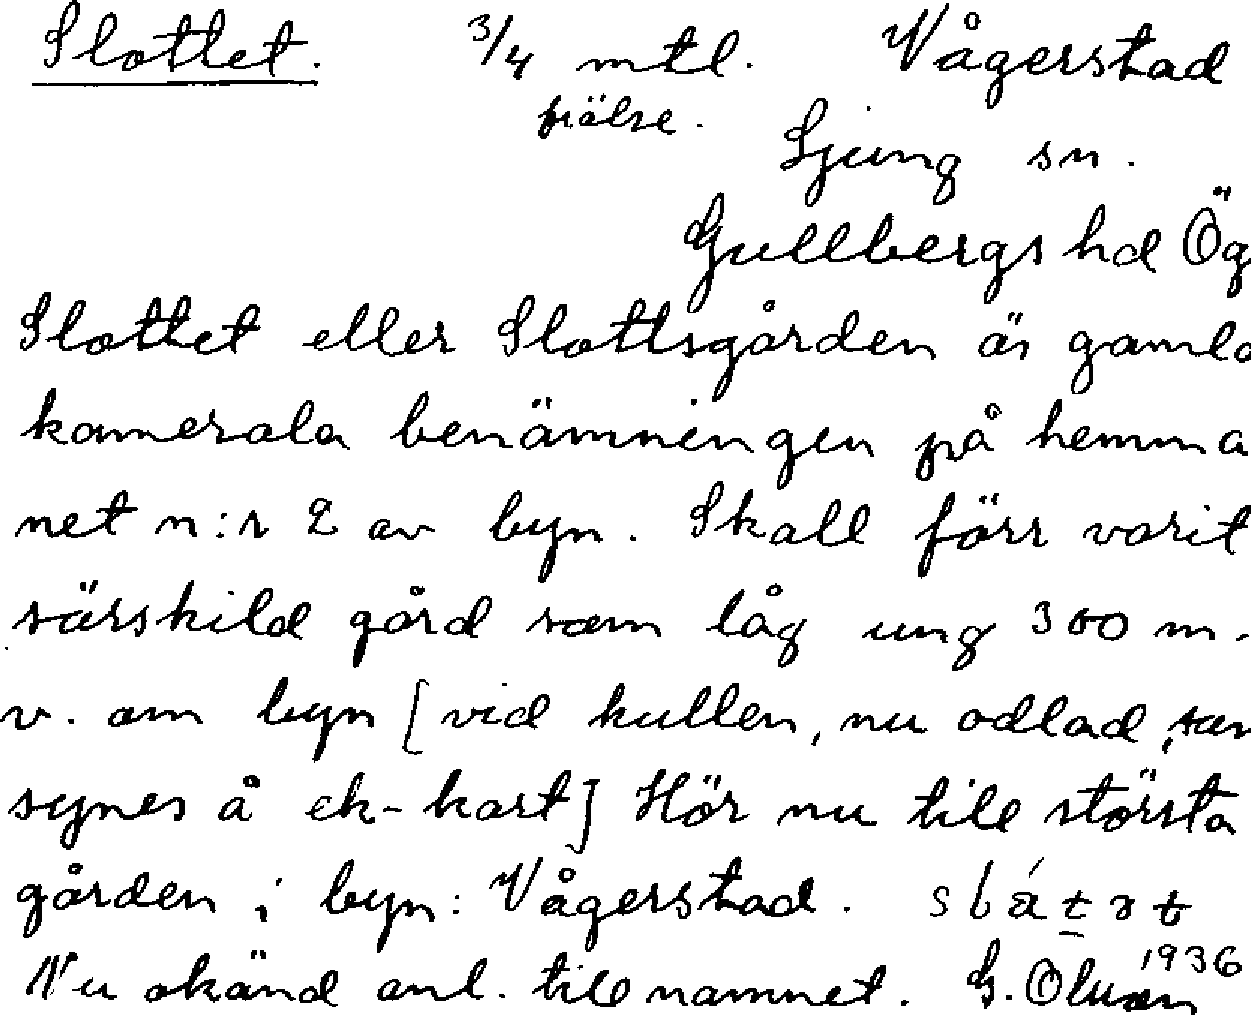 Slottet. 3/4 mtl. Vågerstad
frälse. Ljung sn.
Gullbergs hd Ög
Slottet eller Slottsgården är gamla
kamerala benämningen på hemma
net n:r 2 av byn. Skall förr varit
särskild gård som låg ung 300 m.
v. om byn [vid kullen, nu odlad, som
synes å ek-kart] Hör nu till största
gården i byn: Vågerstad.
Nu okänd anl. till namnet. G. Olsson 1936